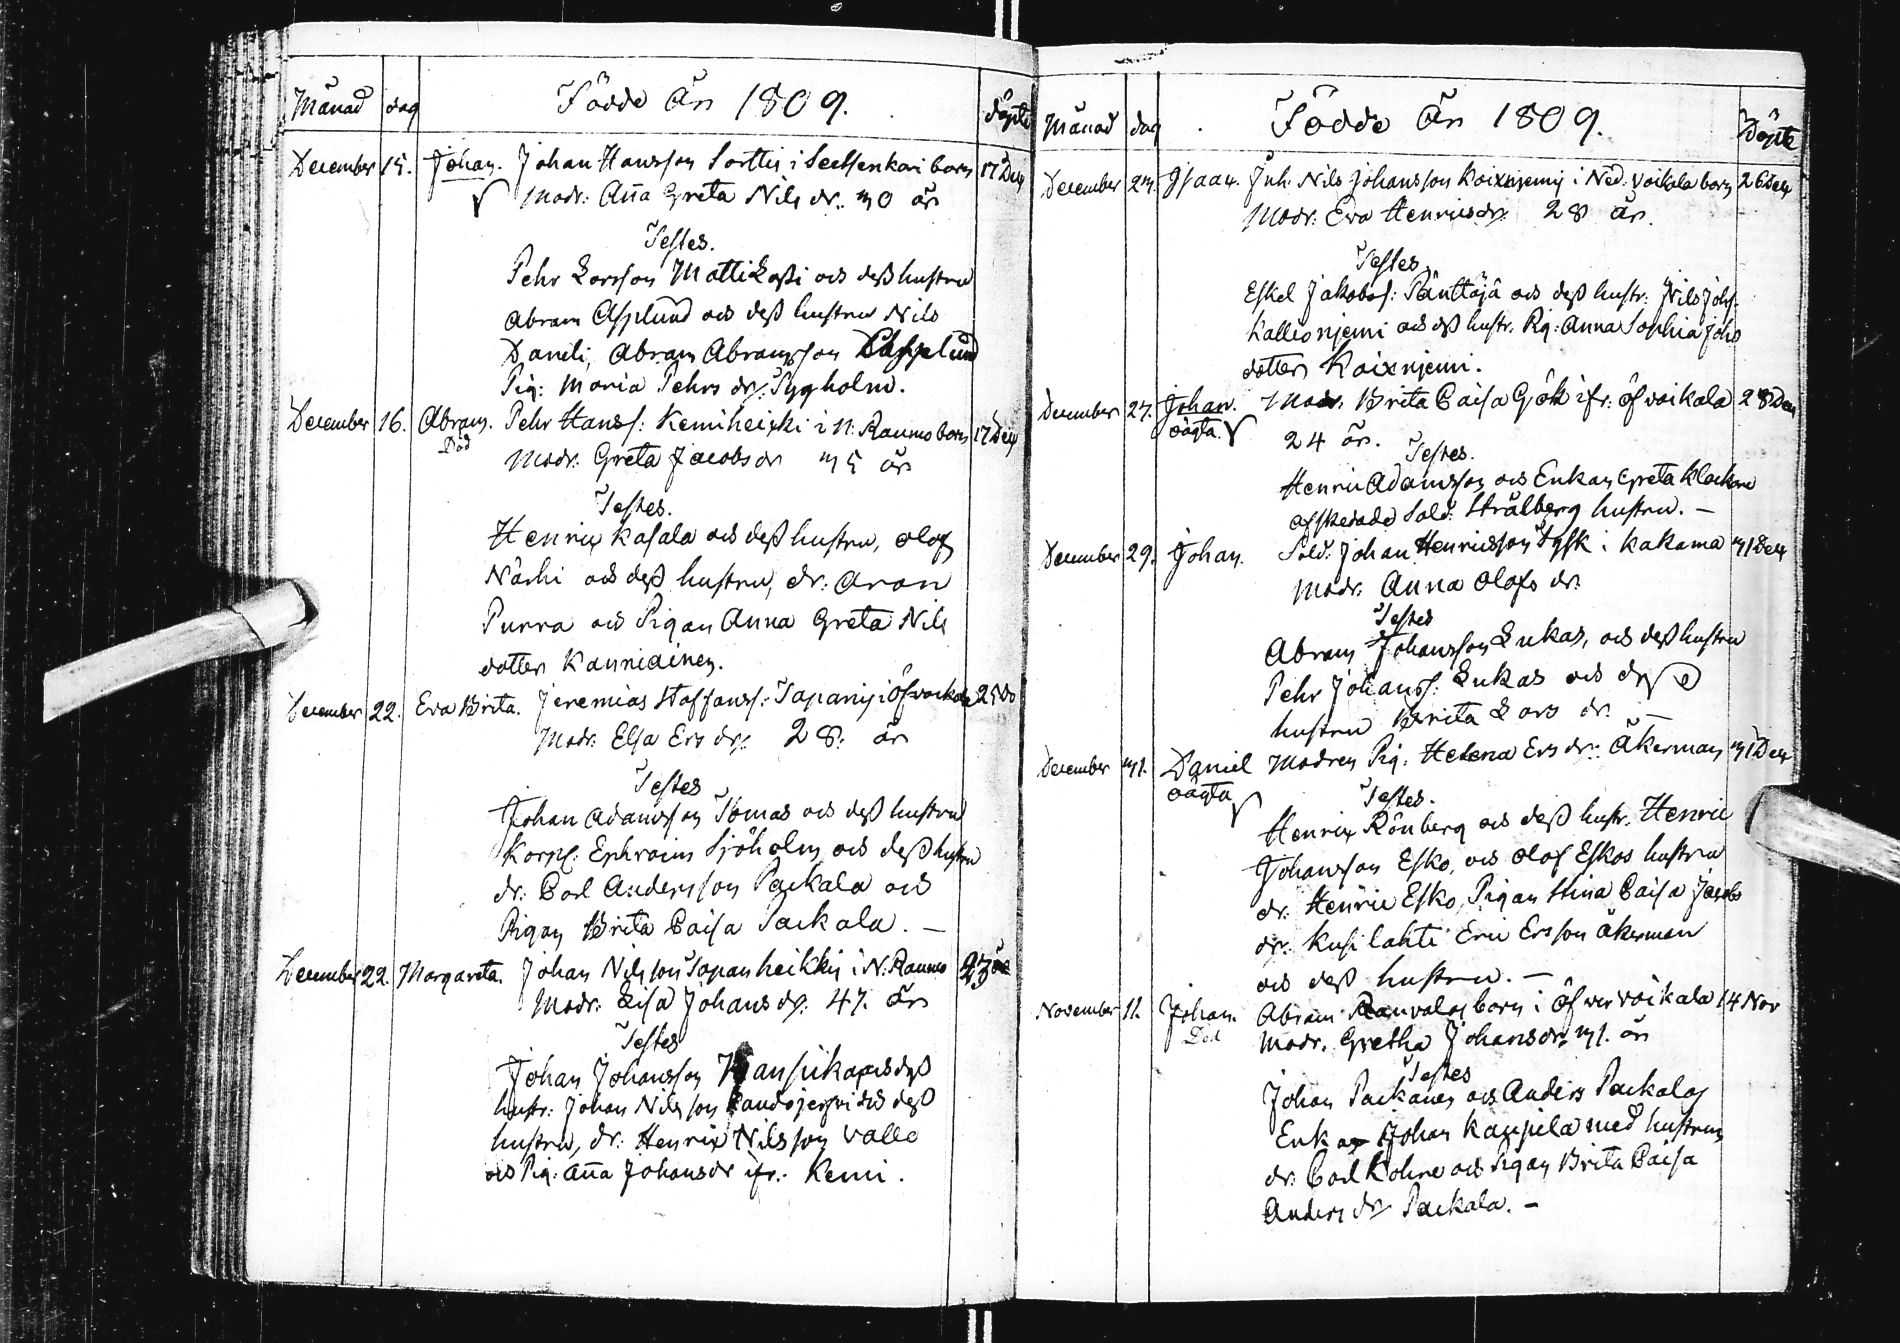 Månad dag Födde År 1809. döpte
December 15. Johan. Johan Hansson Sorttis i Seittenkari barn 17 Dec
Modr: Aña Greta Nils dr: 30 år
Testes.
Pehr Larsson Matti Lassi och dess hustru
Abram Asplund och dess hustru Nils
Daneli, Abram Abramsson Asplund
Pig: Maria Pehrs dr: Tygholm.
December 16. Abram. Pehr Hanss: Kemiheikki i N: Raumo barn 17 Dec
Död Modr: Greta Jacobs dr 35 år
Testes.
Henrix Kasala och dess hustru, Olof
Närhi och dess hustru, dr: Aron
Purra och Pigan Anna Greta Nils
dotter Kauniainen.
December 22. Eva Brita. Jeremias Staffans: Tapanis i Öfvoikala 25 Do
Modr: Elsa Ers dr: 28: år
Testes
Johan Adamsson Tomas och dess hustru
Korpl: Ephraim Sjöholm och dess hustru
dr: Carl Andersson Packala och
Pigan Brita Caisa Packala. –
December 22. Margareta. Johan Nilsson Tapanheikkis i N: Raumo 23 Dec
Modr: Lisa Johans dr: 47. år
Testes
Johan Johansson Kansikas och dess
hustr: Johan Nilsson Raudojerfvi och dess
hustru, dr: Henrix Nilsson Valle
och Pig: Aña Johans dr ifr: Kemi.
Månad dag Födde År 1809. Döpte
December 23. Isaac. Inh: Nils Johansson Koixnjemi i Ned: Voikala barn 26 Dec
Modr: Eva Henricsdr: 28 år.
Testes
Eskel Jakobss: Pänttäjä och dess hustr: Nils Johs:
Kallionjemi och dess hustr. Pig: Anna Sophia Johs
dotter Koixnjemi.
December 27. Johan. Modr: Brita Caisa Gök ifr: Öfvoikala 28 Dec
oägta. 24 år.
Testes.
Henric Adamsson och Enkan Greta Klockare
Afskedade Sold: Strålberg hustru. –
December 29. Johan. Sold: Johan Henricsson Tysk i Kakama 31 Dec
Modr: Anna Olofs dr:
Testes
Abram Johansson Lukas, och dess hustru
Pehr Johanss: Lukas och dess
hustru Brita Lars dr. –
December 31. Daniel Modren Pig: Helena Ers dr: Åkerman 31 Dec
oägta
Testes.
Henrix Rönberg och dess hustr. Henric
Johansson Esko, och Olof Eskos hustru
dr: Henric Esko, Pigan Stina Caisa Jacobs
dr: Kusilahti Eric Ersson Åkerman
och dess hustru. –
November 11. Johan. Abram Rauvalas barn i Öfver Voikala 14 Nov
Död Modr. Gretha Johansdr. 31. år
Testes
Johan Packanen och Anders Packalas
Enka Johan Kaupila med hustrun
dr: Carl Kohne och Pigan Brita Caisa
Anders dr Packala. –